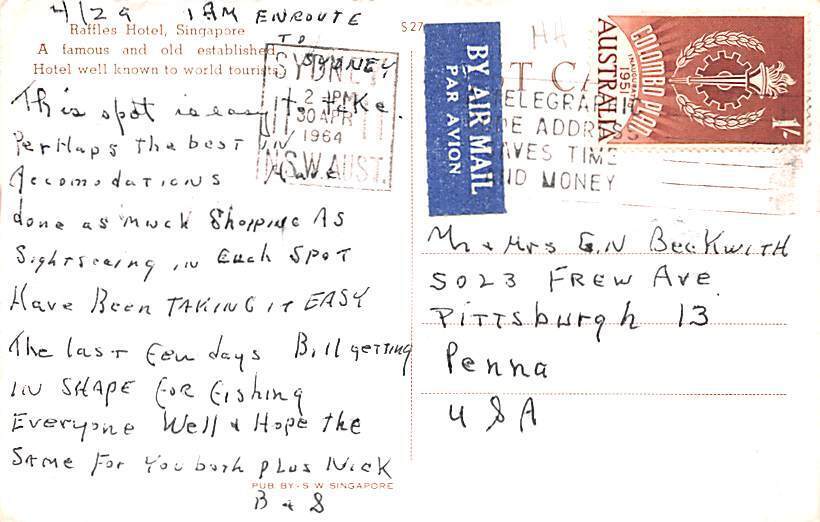 4/29 1 AM ENROUTE
TO
SYDNEY
Raffles Hotel, Singapore
A famous and old established
Hotel well known to world tourists
This spot is easy to take.
Perhaps the best in
Accomodations Have
done as much Shopping As
Sightseeing in Each Spot
Have Been TAKING it EASY
The last Few days Bill getting
IN SHAPE FOR Fishing
Everyone Well & Hope the
SAME For You both plus Nick
B & S
PUB BY:- S W SINGAPORE
S 27
SYDNEY
2 - PM
30 APR
1964
N.S.W. AUST.
BY AIR MAIL
PAR AVION
ST CA
TELEGRAPHIC
DE ADDRESS
AVES TIME
ND MONEY
COLOMBO PLAN
INAUGURATED
1951
AUSTRALIA
1/-
Mr & Mrs G.N Beckwith
5023 FREW Ave.
Pittsburgh 13
Penna
USA